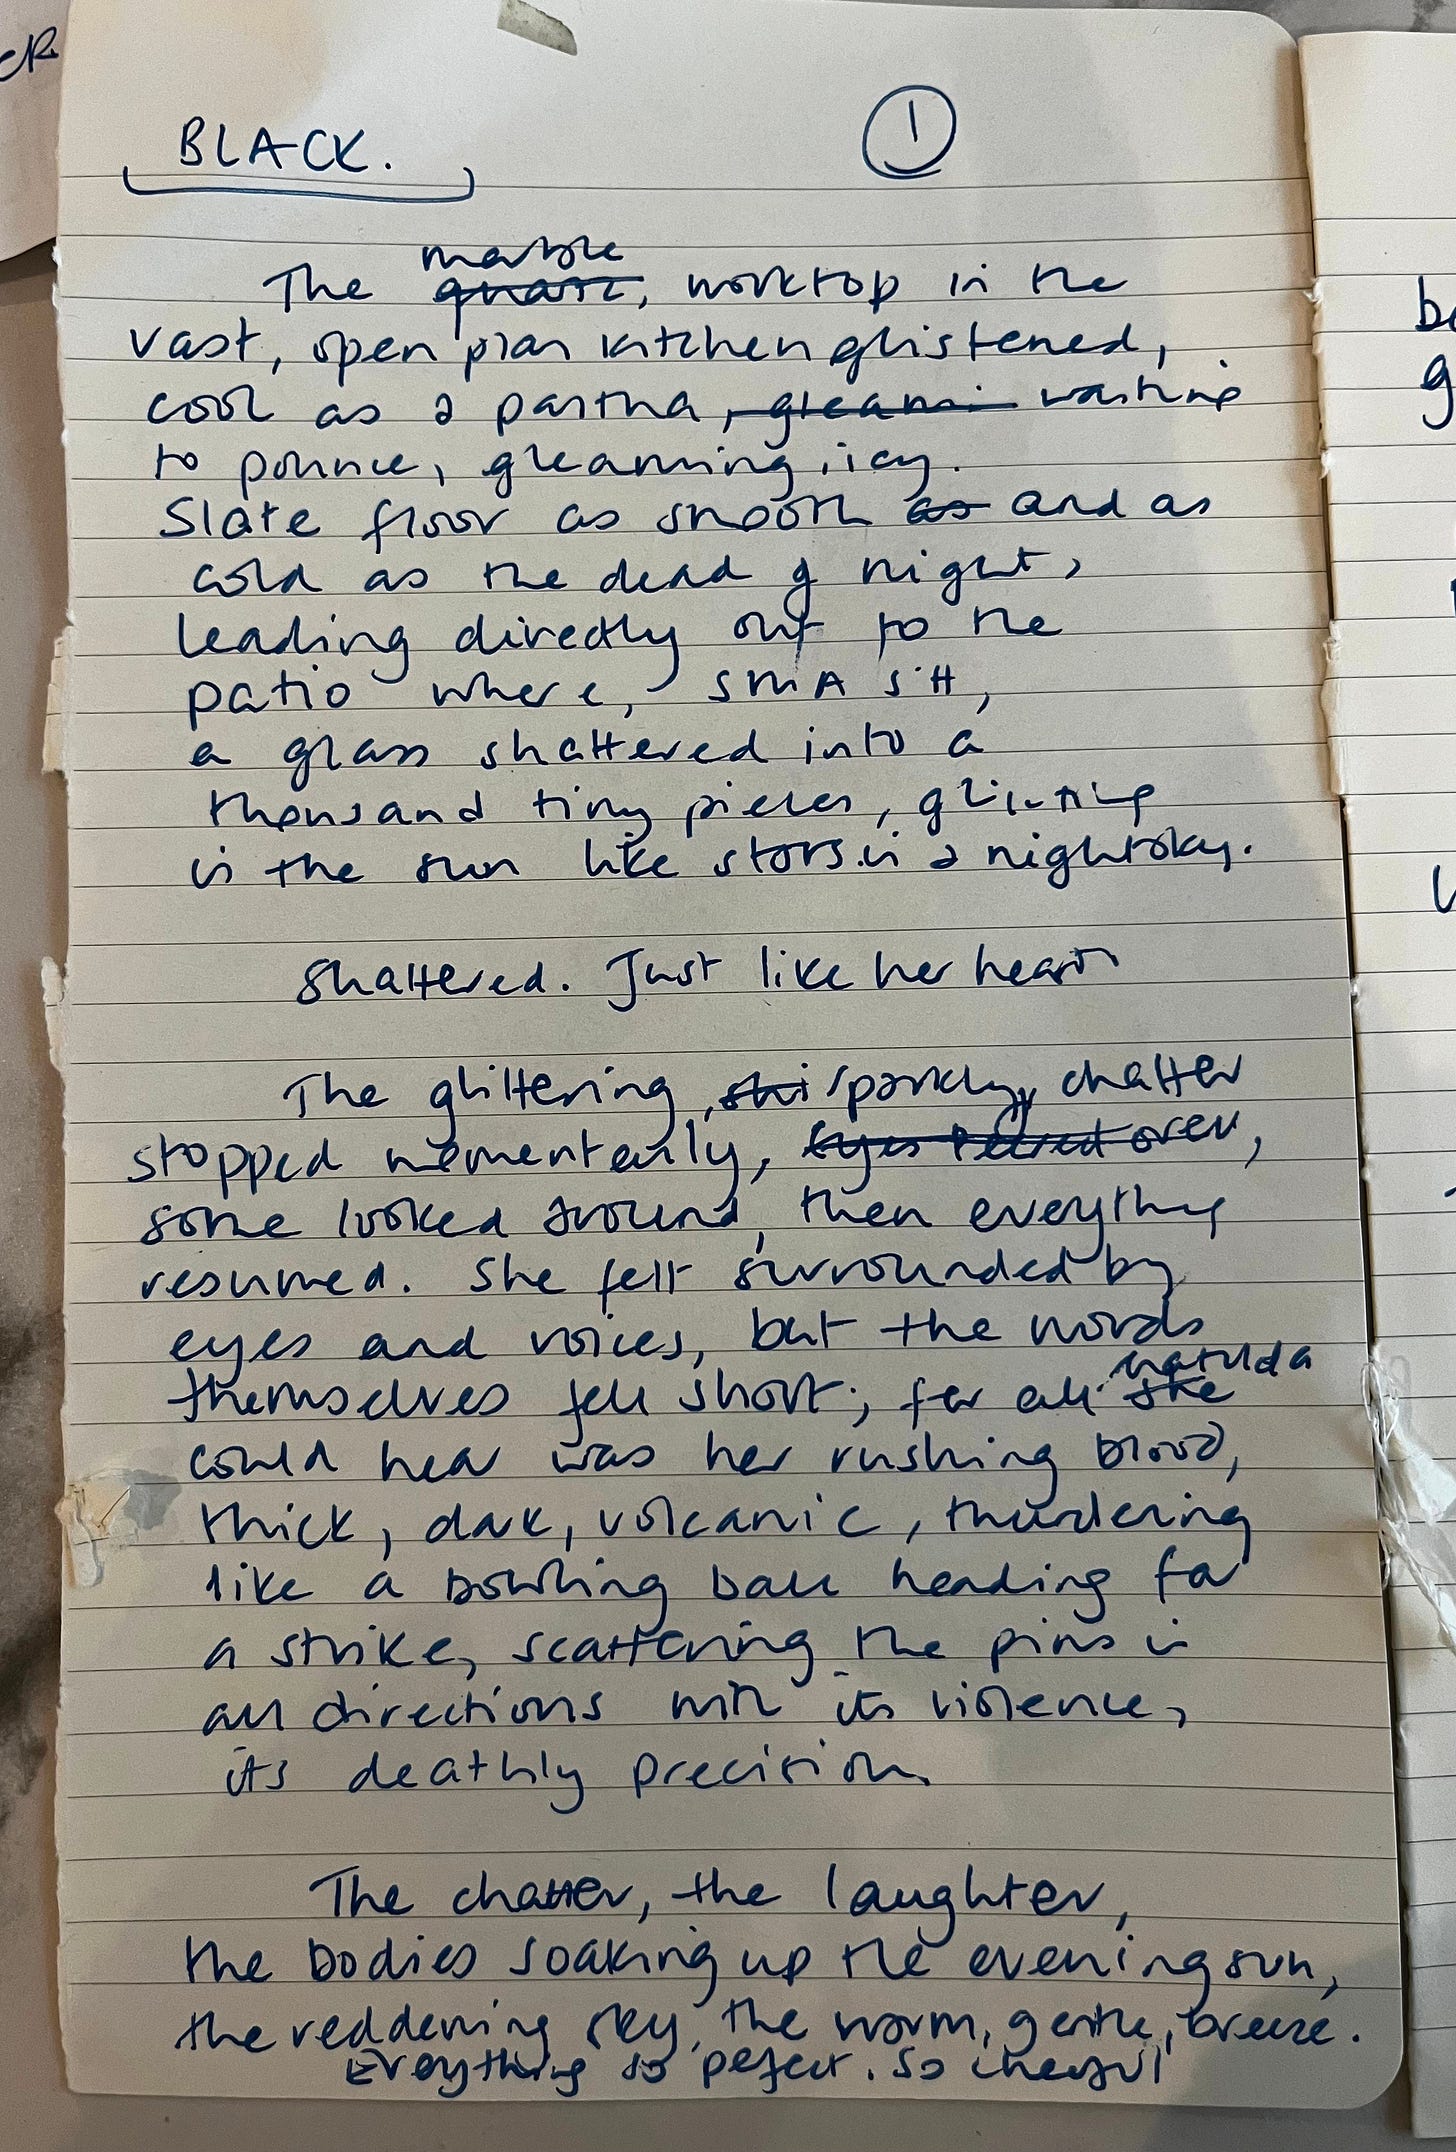 BLACK.
1
marble
The quartz, worktop in the
vast, open plan kitchen glistened,
cool as a panther, gleami waiting
to pounce, gleaming, icy.
Slate floor as smooth as and as
cold as the dead of night,
leading directly out to the
patio where, SMASH,
a glass shattered into a
thousand tiny pieces, glinting
in the sun like stars in a night sky.
Shattered. Just like her heart
The glittering, shi sparkly, chatter
stopped momentarily, Eyes peered over,
some looked around, then everything
resumed. She felt surrounded by
eyes and voices, but the words
matilda
themselves fell short; for all she
could hear was her rushing blood,
thick, dark, volcanic, thundering
like a bowling ball heading for
a strike, scattering the pins in
all directions with its violence,
its deathly precision.
The chatter, the laughter,
the bodies soaking up the evening sun,
the reddening sky, the warm, gentle, breeze.
Everything so pefect. So cheerful